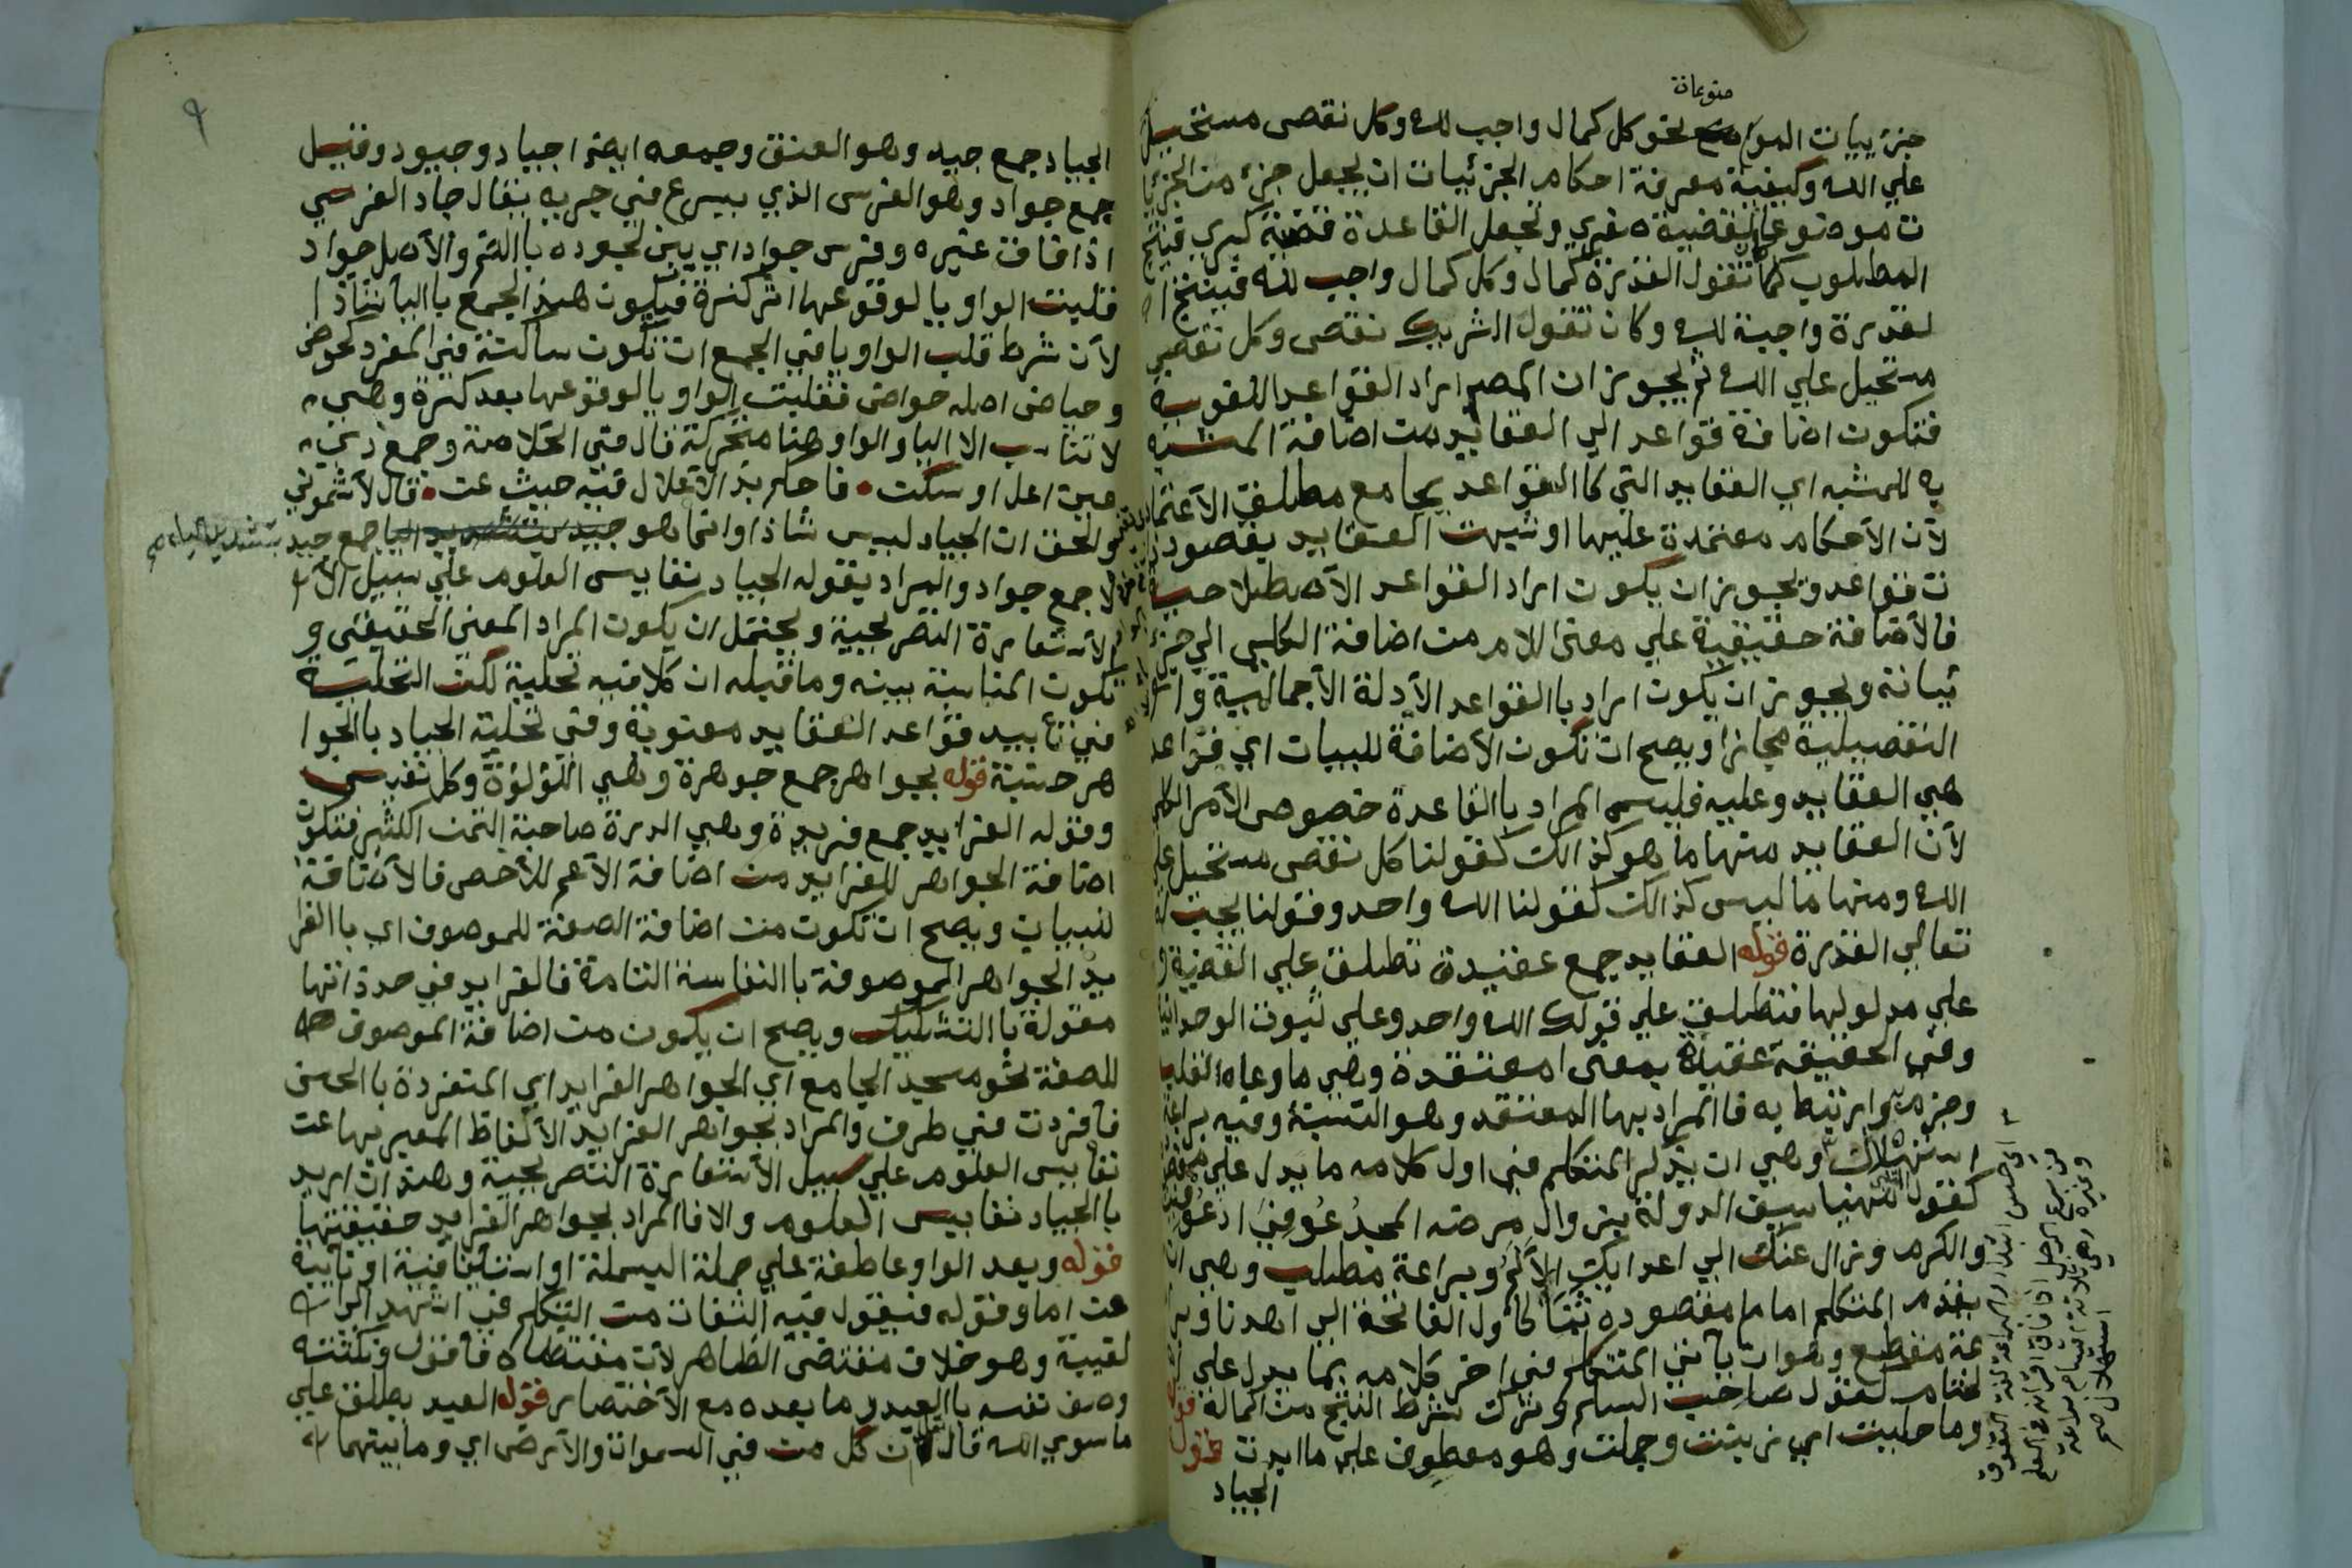 موضوعاته
جزئييات المواضع نحو كل كمال واجب لله وكل نقص مستحيل
علي الله وكيفية معرفة احكام الجزئيات ان يجعل جزء من الجزئيا
ت موضوعا لقضية صغري وتجعل القاعدة قضية كبري فينتج
المطلوب كما تقول القدرة كمال وكل كمال واجب لله فينتج ا
لقدرة واجبة لله وكان تقول الشريك نقص وكل نقص
مستحيل علي الله ثم يجوز ان المصر اراد القواعد اللغوية
فتكون اضافة قواعد الي العقايد من اضافة المشبه
به للمشبه اي العقايد التي كالقواعد بجامع مطلق الاعتماد
لأن الأحكام معتمدة عليها او شبهت العقايد بقصود
ت قواعد ويجوز ان يكون اراد القواعد الأصطلاحية
فالأضافة حقيقية علي معني اللام من اضافة الكلي الي جزئ
ئياته ويجوز ان يكون اراد باالقواعد الأدلة الأجمالية و
التفصيلية مجازا ويصح ان تكون الأضافة للبيات اي قواعد
هي العقايد وعليه فليس المراد باالقاعدة خصوص الأمر الكلي
لأن العقايد منها ما هو كذالك كقولنا كل نقص مستحيل علي
الله ومنها ما ليس كذالك كقولنا الله واحد وقولنا يجب له
تعالي القدرة قوله العقايد جمع عقيدة تطلق علي القضية و
علي مدلولها فتطلق علي قولك الله واحد وعلي ثبوت الوحدانية
وفي الحقيقة عقيدة بمعني معتقدة وهي ما وعاه القلب
وجزم به وارتبط به فاالمراد بها المعتقد وهو النسبة وفيه براعة
استهلال وهي ان يذكر المتكلم في اول كلامه ما يدل علي مقصوده
كقول المهنيا سيف الدولة بزوال مرضه المجد عوفي اذ عوفيت
والكرم وزال عنك الي اعدايك الألم وبراعة مطلب وهي ان
يقدم المتكلم امام مقصوده ثنا كأول الفاتحة الي اهدنا وبرا
عة مقطع وهو ان يأتي المتكلم في اخر كلامه بما يدل علي
لختام كقول صاحب السلم وترك شرط النتج من اكماله قوله
وما حليت اي زينت وجملت وهو معطوف علي ما ابدت قوله
الجياد
٩
الجياد جمع جيد وهو العنق وجمعه ايضا اجياد وجيود وقيل
جمع جواد وهو الفرس الذي يسرع في جريه يقال جاد الفرس
اذا فاق غيره وفرس جواد اي بين الجوده باالضم والأصل جواد
قلبت الواو يا لوقوعها اثر كسرة فيكون هذ الجمع باالياء شاذا
لأن شرط قلب الواو يا في الجمع ان تكون ساكنة في المفرد كحوض
وحياض اصله حواض فقلبت الواو يا لوقوعها بعد كسرة وهي
لا تناسب الا اليا والواو هنا متحركة قال في الخلاصة وجمع ذي
عين اعل او سكن • فاحكم بذ الأعلال فيه حيث عن • قال الأشموني
والحق ان الجياد ليس شاذا وانما هو جيد جمع جيد بتشديد الياء صح
لا جمع جواد والمراد بقوله الجياد نفايس العلوم علي سبيل الا
الأستعارة التصريحية ويحتمل ان يكون المراد المعني الحقيقي و
تكون المناسبة بينه وما قبله ان كلا فيه تحلية لكن التحلية
في تأييد قواعد العقايد معنوية وفي تحلية الجياد باالجوا
هر حسية قوله بجواهر جمع جوهرة وهي اللؤلؤة وكل نفيس
وقوله الفرايد جمع فريدة وهي الدرة صاحبة الثمن الكثير فتكون
اضافة الجواهر للفرايد من اضافة الأعم للأخص فالأضافة
للبيان ويصح ان تكون من اضافة الصفة للموصوف اي باالفرا
يد الجواهر الموصوفة باالنفاسة التامة فالفرايد في حدذاتها
مقولة باالتشكيك ويصح ان يكون من اضافة الموصوف
للصفة نحو مسجد الجامع اي الجواهر الفرايد اي المتفردة باالحسن
فأفردت في طرف والمراد بجواهر الفرايد الألفاظ المعبر بها عن
نفايس العلوم علي سبيل الأستعارة التصريحية وهذا ان اريد
باالجياد نفايس العلوم والا فاالمراد بجواهر الفرايد حقيقتها
قوله وبعد الواو عاطفة علي جملة البسملة او استئنافية او نايبة
عن اما وقوله فيقول فيه التفات من التكلم في اشهد الي ا
لغيبة وهو خلاف مقتضي الظاهر لأن مقتضاه فأقول ونكتته
وصف نفسه باالعبد ما بعده مع الأختصار قوله العبد يطلق علي
ما سوي الله قال ان كل من في السموات والأرض اي وما بينهما